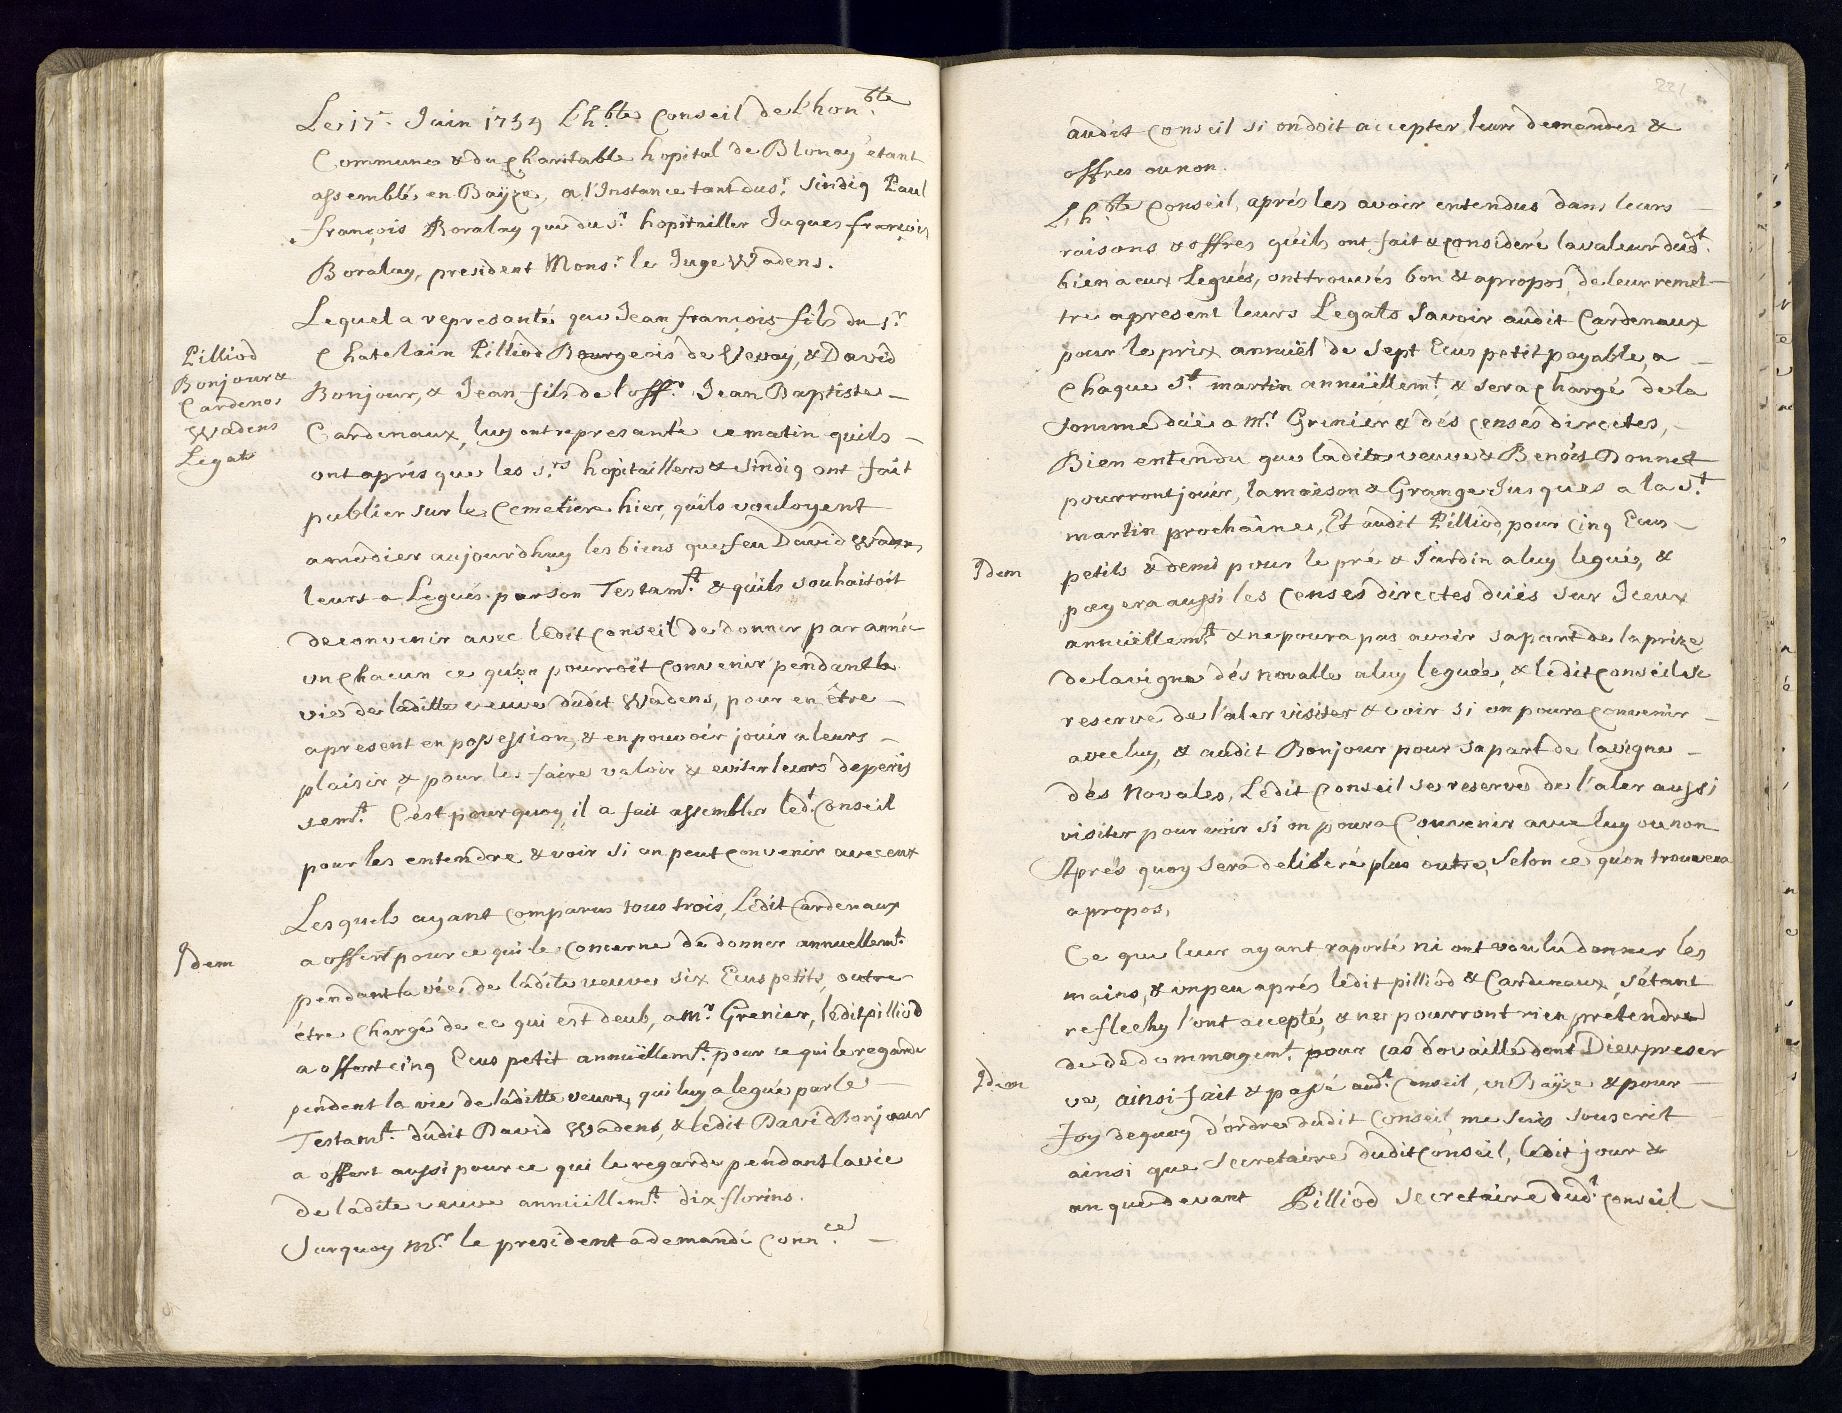 Le 17.e Juin 1739 L'h.ble Conseil de L'hon.ble
Commune & du Charitable hopital de Blonay étant
assemblé en Baÿze, a l'Instance tant du s.r Sindiq Paul
françois Boralay que du s.r hopitailler Jaques françois
Boralay, president Mons.r le Juge Wadens.
Lequel a represanté que Jean françois fils du s.r
Chatelain Pilliod Bourgeois de Vevay, & David
Bonjour, & Jean fils de l'off.r Jean Baptiste
Cardenaux, luy ont represanté ce matin quils
ont apris que les s.rs hopitaillers & sindiq ont fait
publier sur le Cemetiere hier, quils vouloyent
amodier aujourdhuy les biens que feu David Wadens
leurs a Legués par son Testam.t & quils souhaitoit
de convenir avec ledit Conseil de donner par année
un Chacun ce qu'on pourroit convenir pendant la
vie de laditte veuve dudit Wadens, pour en être
apresent en possession, & en pouvoir jouir a leurs
plaisir & pour les faire valoir & eviter leurs deperis
sem.t C'est pourquoy il a fait assembler led.t Conseil
pour les entendre & voir si on peut convenir avec eux
Pilliod
Bonjour &
Cardenos
Wadens
Legats
Lesquels ayant comparus tous trois, Ledit Cardenaux
a offert pour ce qui le concerne de donner annuellem.t
Idem
pendant la vie de ladite veuve six Ecus petits, outre
être chargé de ce qui est deub, a M.r Grenier, ledit pilliod
a offert cinq Ecus petit annuëllem.t pour ce qui le regarde
pendent la vie de laditte veuve, qui luy a legué par le
Testam.t dudit David Wadens, & ledit David Bonjour
a offert aussi pour ce qui le regarde pendant la vie
de ladite veuve annuëllem.t dix florins.
Surquoy M.r le president a demandé Conn.ce
221
audit Conseil si on doit accepter leurs demandes &
offres ou non.
L'h.ble Conseil, aprés les avoir entendus dans leurs
raisons & offres quils ont fait & consideré la valeur dud.t
bien a eux Legués, ont trouvés bon & apropos, de leur remet
tre apresent leurs Legats Savoir audit Cardenaux
pour le prix annuël de Sept Ecus petit payable, a
Chaque S.t martin annuëllem.t & sera chargé de la
somme düe a M.r Grenier & dés censes directes,
Bien entendu que ladite veuve & Benoit Donnet
pourront jouir, la maison & Grange Jusques a la S.t
martin prochaine, Et audit Pilliod, pour cinq Ecus
petits & demi pour le pré & Jardin a luy legués, &
Idem
payera aussi les Censes directes düës sur Iceux
annuëllem.t & ne poura pas avoir sa part de la prize
de la vigne dés novalle a luy leguée, & ledit Conseil se
reserve de l'aler visiter & voir si on poura convenir
avec luy, & audit Bonjour pour sa part de la vigne
dés Novales, Ledit Conseil se reserve de l'aler aussi
visiter pour voir si on poura Convenir avec luy ou non
Aprés quoy sera deliberé plus outre, Selon ce qu'on trouvera
apropos,
Ce que leur ayant raporté ni ont voulu donner les
mains, & un peu aprés ledit pilliod & Cardenaux, s'étant
reflechy l'ont accepté, & ne pourront rien pretendre
de dedommagem.t pour cas d'ovaille dont Dieu preser
Idem
ve, ainsi fait & passé aud.t Conseil, en Baÿze & pour
foy dequoy d'ordre dudit Conseil me suis souscrit
ainsi que Secretaire dudit Conseil, ledit jour &
an que devant Pilliod Secretaire dud.t Conseil